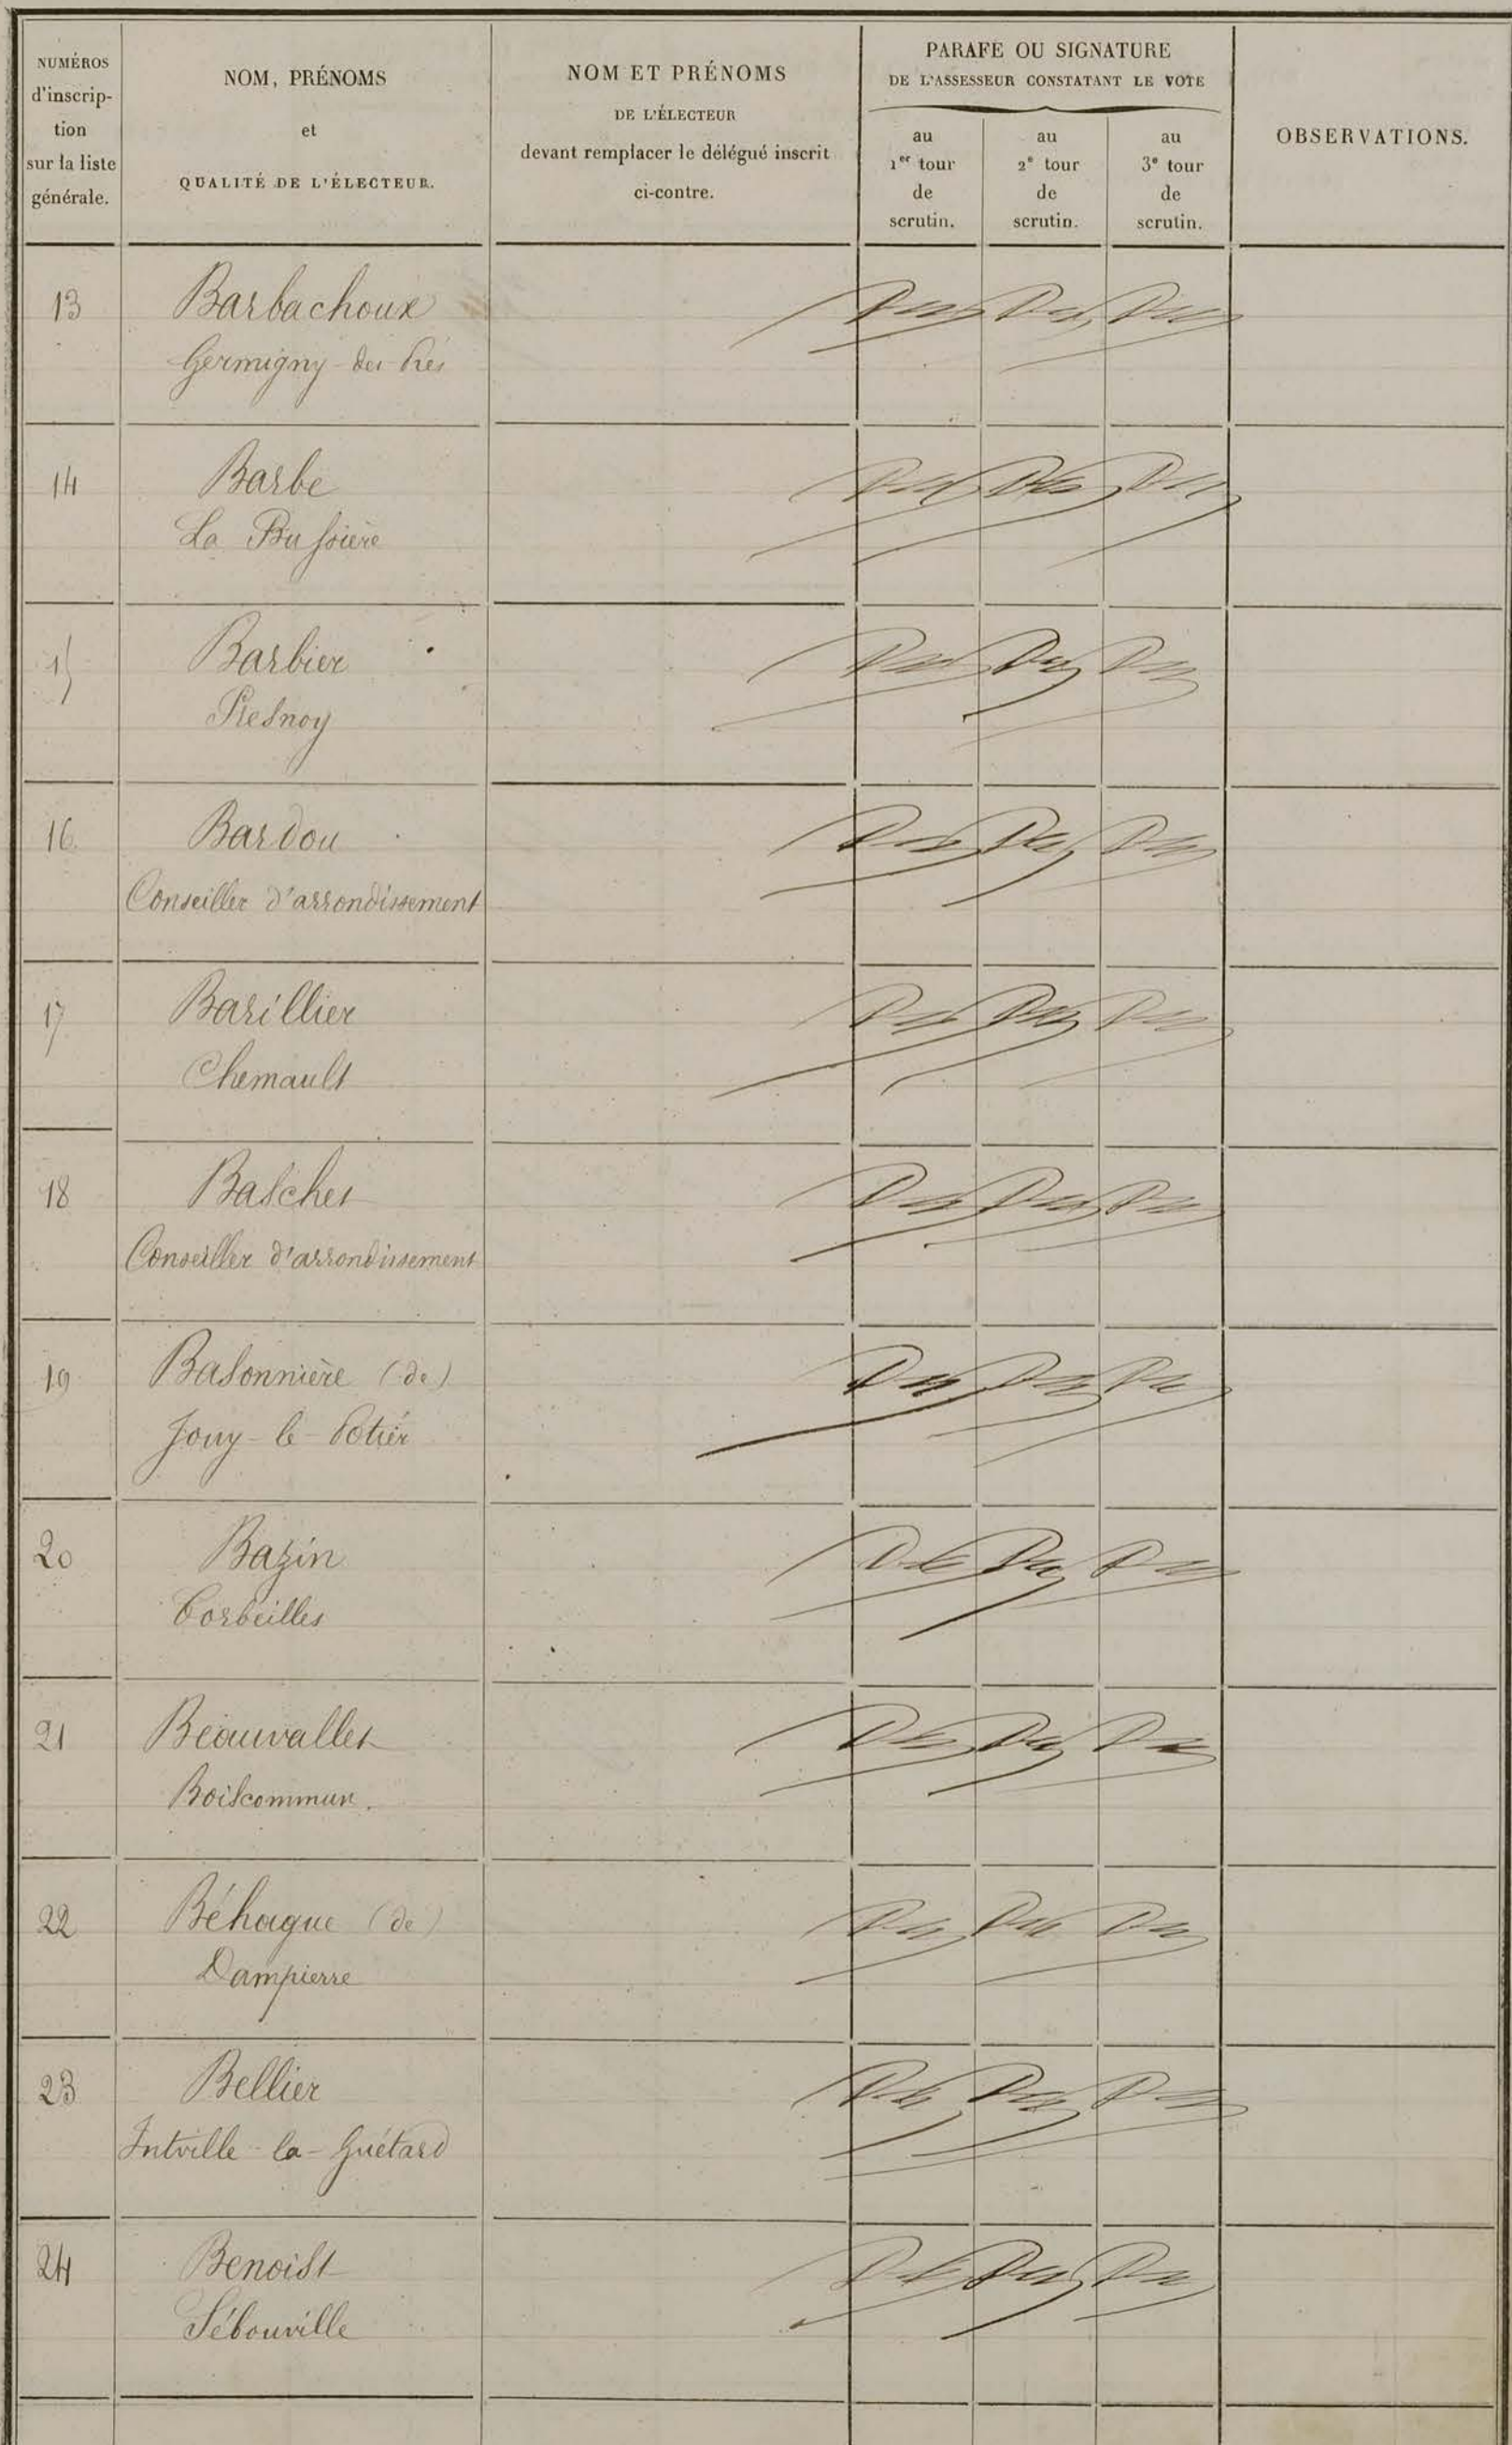 NUMÉROS
d'inscrip-
tion
sur la liste
générale.
NOM, PRÉNOMS
et
QUALITÉ DE L'ÉLECTEUR.
NOM ET PRÉNOMS
DE L'ÉLECTEUR
devant remplacer le délégué inscrit
ci-contre.
PARAFE OU SIGNATURE
DE L'ASSESSEUR CONSTATANT LE VOTE
au
1er tour
de
scrutin.
au
2e tour
de
scrutin.
au
3e tour
de
scrutin.
OBSERVATIONS.
13
Barbachoux
Germigny-des-Prés
14
Barbe
La Bussière
15
Barbier
Presnoy
16
Bardou
Conseiller d'arrondissement
17
Barillier
Chemault
18
Baschet
Conseiller d'arrondissement
19
Basonnière (de)
Jouy-le-Potier
20
Bazin
Corbeilles
21
Beauvallet
Boiscommun.
22
Béhague (de)
Dampierre
23
Bellier
Intville-la-Guétard
24
Benoist
Sébouville